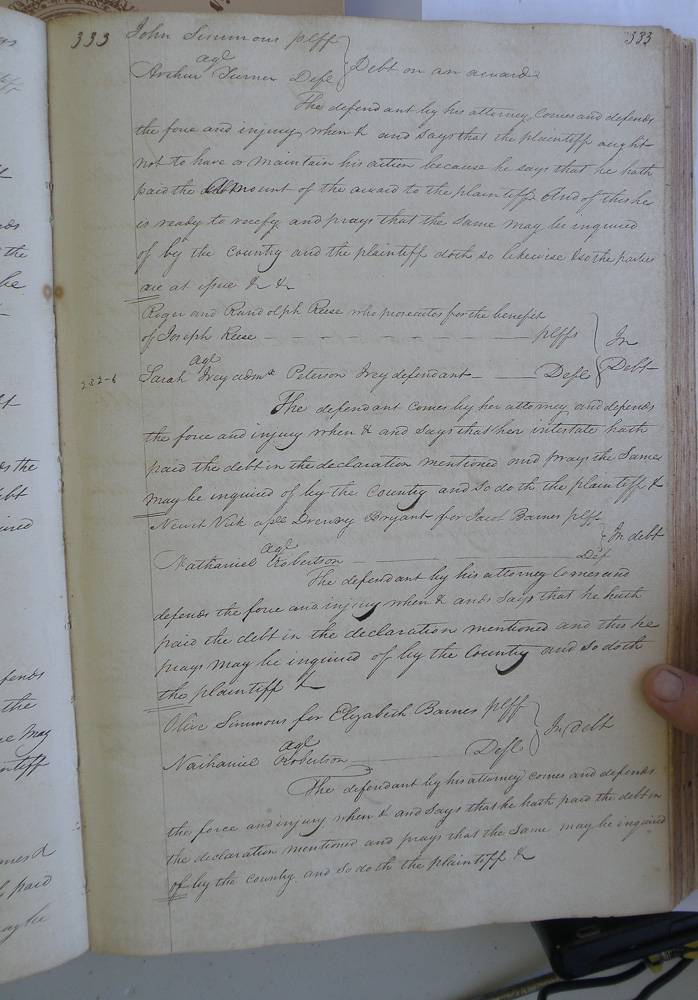 333 John Simmons plff 333
agt
Arthur Turner Deft Debt on an award
The defendant by his attorney Comes and defends
the force and injury when & and says that the plaintiff ought
not to have or maintain his action because he says that he hath
paid the Amount of the award to the plaintiff And of this he
is ready to verify and prays that the Same may be inquired
of by the Country and the plaintiff doth so likewise & so the parties
are at issue & &
Roger and Randolph Reese who prosecutes for the benefit
of Joseph Reese plffs In
agt
Sarah Ivey admx Peterson Ivey defendant Deft Debt
The defendant comes by her attorney and defends
the force and injury when & and says that her intestate hath
paid the debt in the declaration mentioned and prays the Same
may be inquired of by the Country and So doth the plaintiff &
Newit Vick assee Drewry Bryant for Jacob Barnes plff
agt In debt
Nathaniel Robertson Def
The defendant by his attorney Comes and
defends the force and injury when & and Says that he hath
paid the debt in the declaration mentioned and this he
prays may be inquired of by the Country and So doth
the plaintiff &
Olive Simmons for Elizabeth Barnes plff
agt In debt
Nathaniel Robertson Deft
The defendant by his attorney comes and defends
the force and injury when & and Says that he hath paid the debt in
the declaration mentioned and prays that the Same may be inquired
of by the Country and So doth the plaintiff &